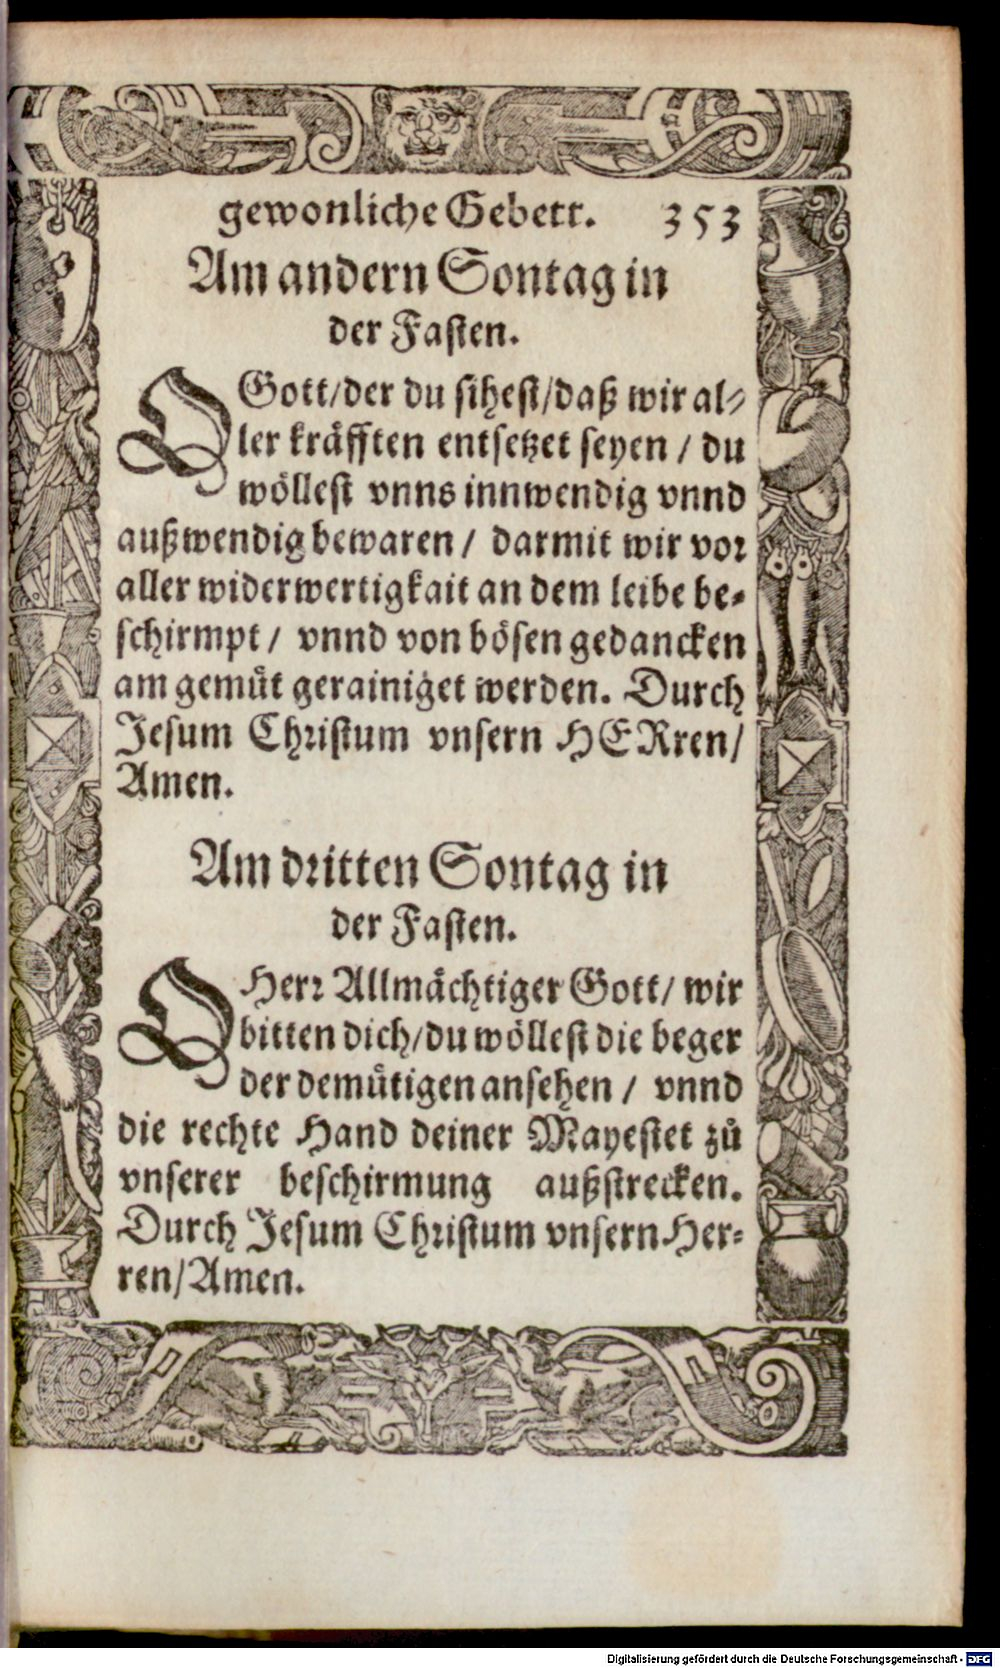 gewonliche Gebett. 353
Am andern Sontag in
der Fasten.
O Gott/der du sihest/daß wir al-
ler kräfften entsetzet seyen / du
wöllest vnns innwendig vnnd
außwendig bewaren / darmit wir vor
aller widerwertigkait an dem leibe be-
schirmpt / vnnd von bösen gedancken
am gemüt gerainiget werden. Durch
Jesum Christum vnsern HERren/
Amen.
Am dritten Sontag in
der Fasten.
O Herr Allmächtiger Gott/ wir
bitten dich/du wöllest die beger
der demütigen ansehen / vnnd
die rechte Hand deiner Mayestet zů
vnserer beschirmung außstrecken.
Durch Jesum Christum vnsern Her-
ren/Amen.
Digitalisierung gefördert durch die Deutsche Forschungsgemeinschaft - DFG